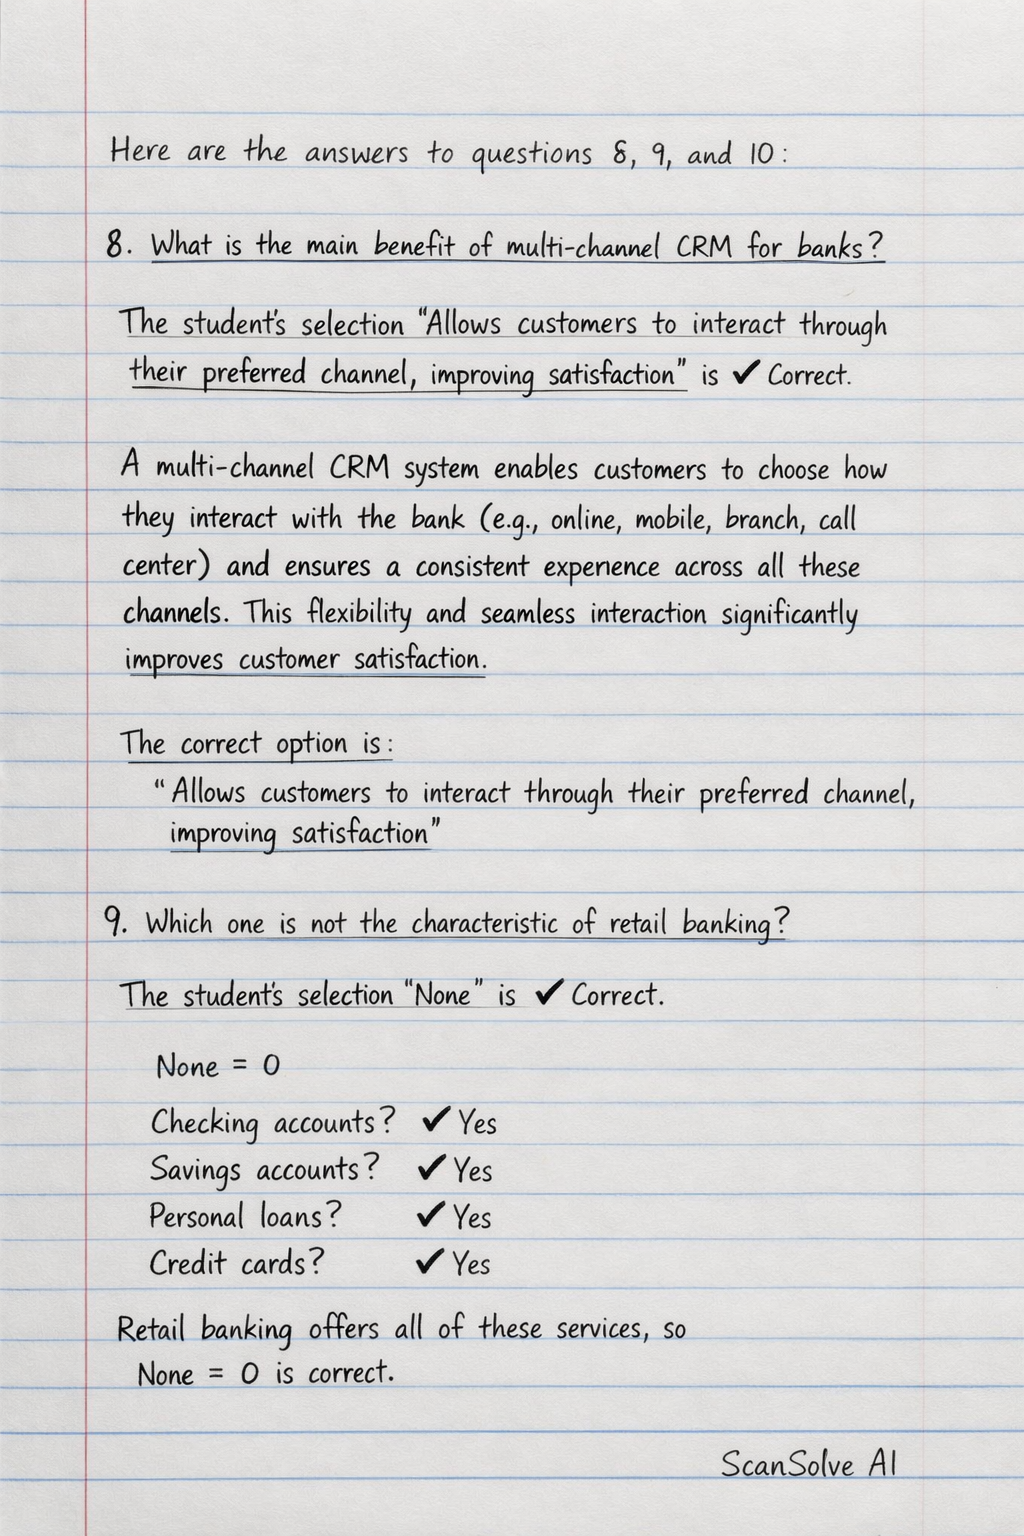 Here are the answers to questions 8, 9, and 10:
8. What is the main benefit of multi-channel CRM for banks?
The student's selection "Allows customers to interact through
their preferred channel, improving satisfaction" is ✔ Correct.
A multi-channel CRM system enables customers to choose how
they interact with the bank (e.g., online, mobile, branch, call
center) and ensures a consistent experience across all these
channels. This flexibility and seamless interaction significantly
improves customer satisfaction.
The correct option is:
"Allows customers to interact through their preferred channel,
improving satisfaction"
9. Which one is not the characteristic of retail banking?
The student's selection "None" is ✔ Correct.
None = 0
Checking accounts? ✔ Yes
Savings accounts? ✔ Yes
Personal loans? ✔ Yes
Credit cards? ✔ Yes
Retail banking offers all of these services, so
None = 0 is correct.
ScanSolve AI